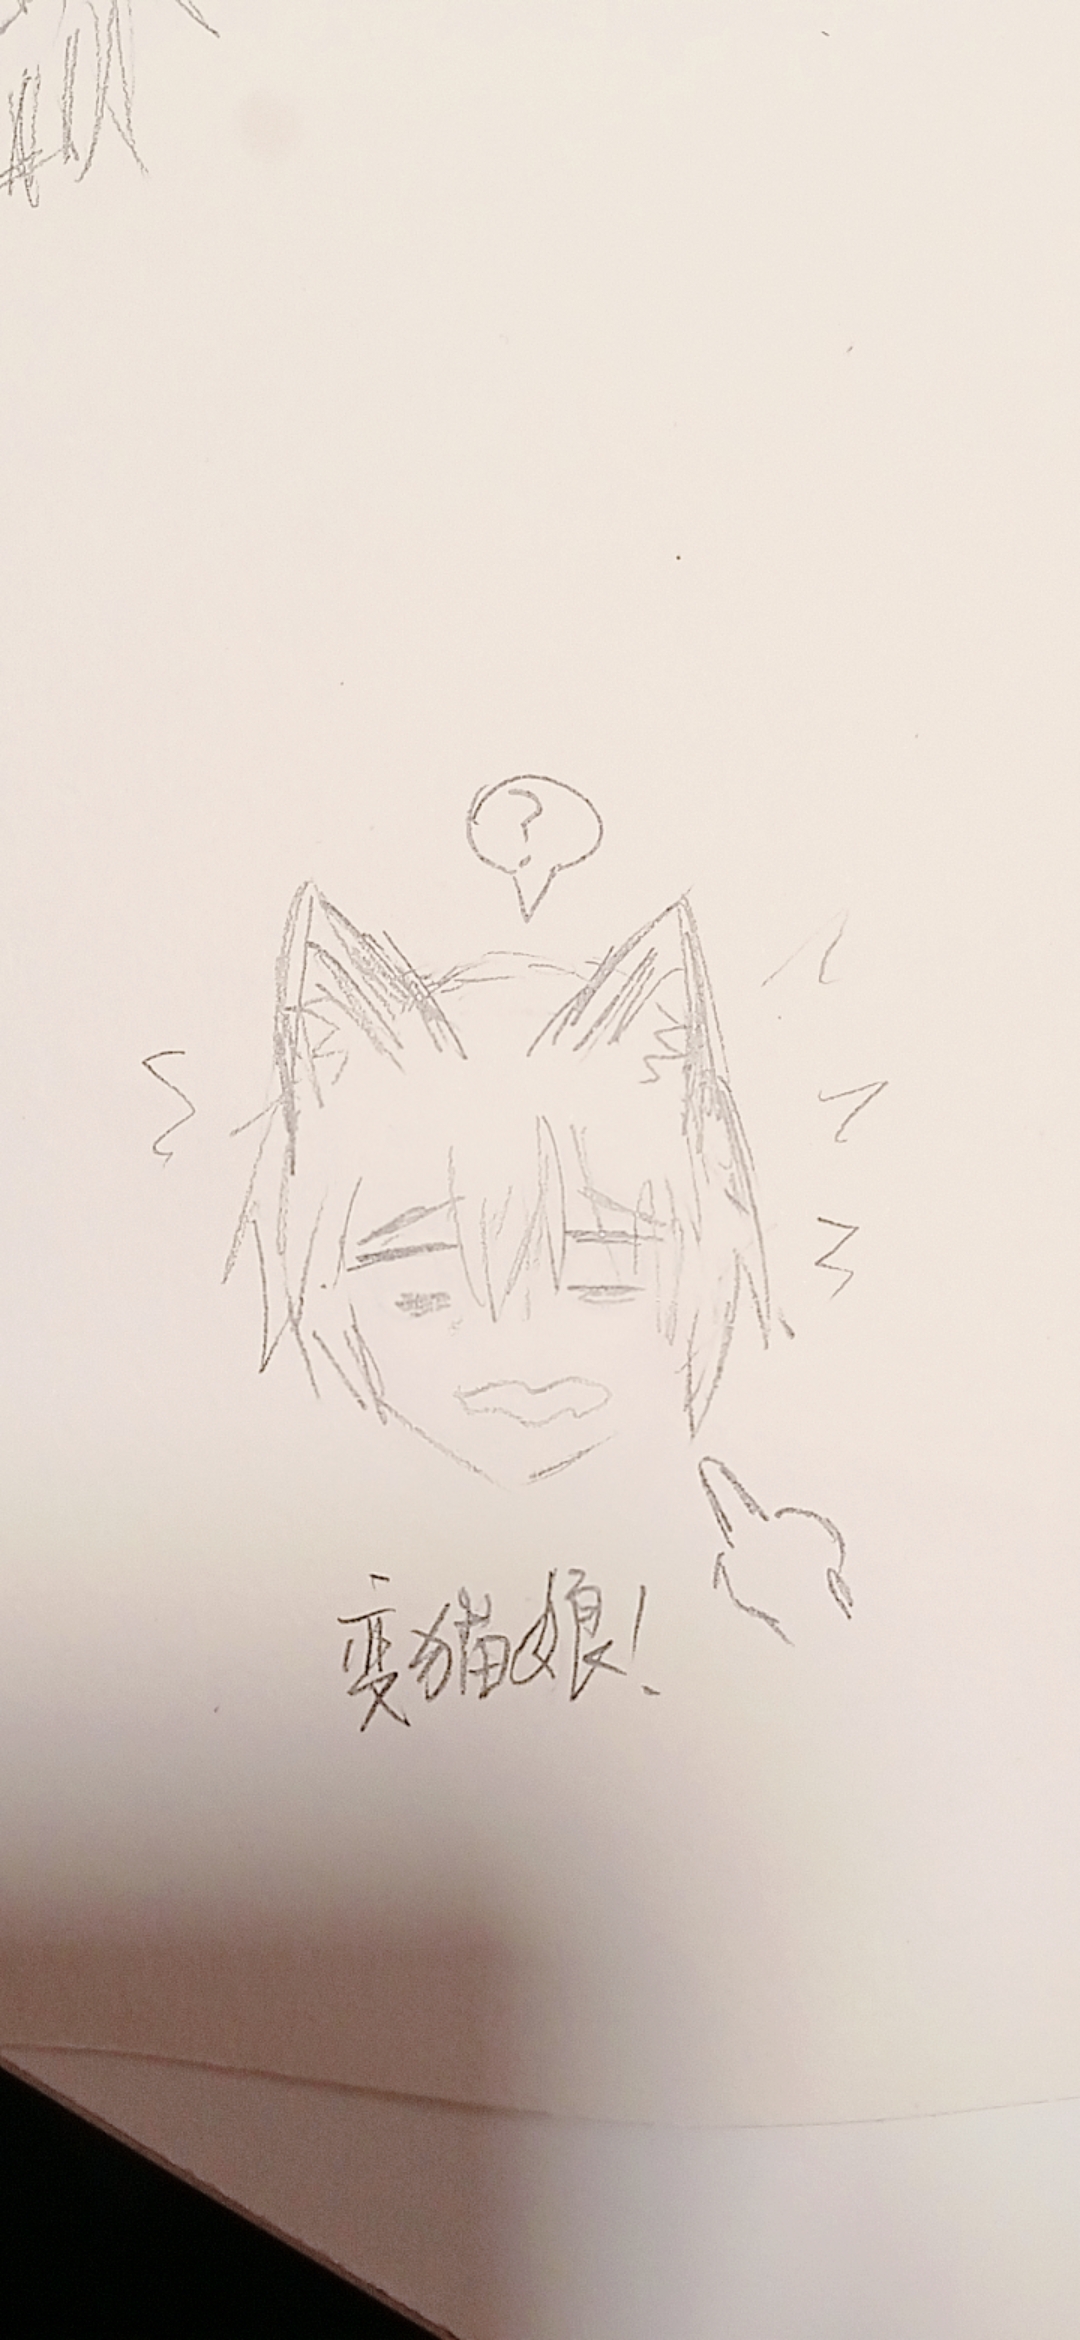 ?
变猫娘!